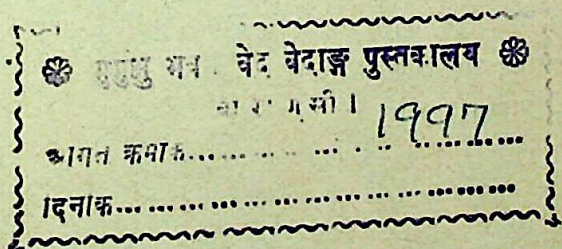 ❀ मुमुक्षु भव . वेद वेदाङ्ग पुस्तकालय ❀
वाराणसी ।
आगत क्रमांक............ 1997 ............
दिनांक........................................